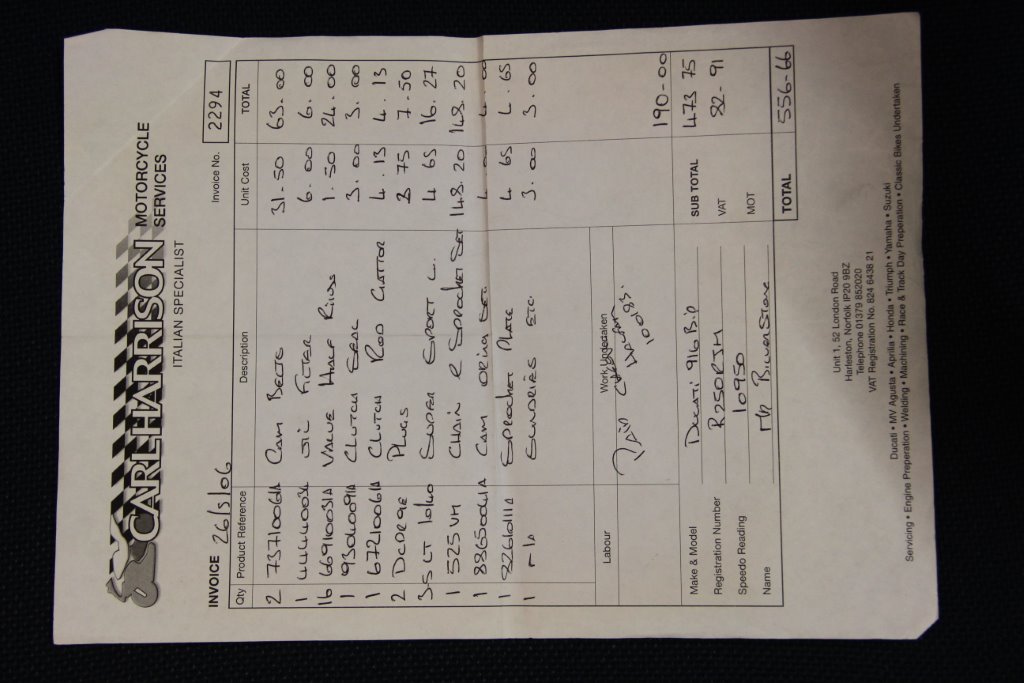 CARL HARRISON MOTORCYCLE SERVICES
ITALIAN SPECIALIST
INVOICE 26/5/06 Invoice No. 2294
Qty Product Reference Description Unit Cost TOTAL
2 73710061A CAM BELTS 31-50 63.00
1 OIL FILTER 6.00 6.00
16 66910031A VALVE HALF RINGS 1.50 24.00
1 93040091A CLUTCH SEAL 3.00 3.00
1 67210061A CLUTCH ROD GATTOR 4.13 4.13
2 DCPR9E PLUGS 3 75 7.50
3.5 LT 10/40 SUPER SPORT L. 4 65 16.27
1 525 VM CHAIN & SPROCKET SET 148.20 148.20
1 88650041A CAM ORING SET 4.00 4.00
1 82610111A SPROCKET PLATE 4 65 4.65
1 SUNDRIES ETC. 3.00 3.00
Labour Work Undertaken
PAID
190-00
Make & Model Ducati 916 Bip SUB TOTAL 473 75
Registration Number R250RJM VAT 82-91
Speedo Reading 10950 MOT
Name Mr
TOTAL 556-66
Unit 1, 52 London Road
Harleston, Norfolk IP20 9BZ
Telephone 01379 852020
VAT Registration No. 824 6438 21
Ducati • MV Agusta • Aprilia • Honda • Triumph • Yamaha • Suzuki
Servicing • Engine Preperation • Welding • Machining • Race & Track Day Preperation • Classic Bikes Undertaken